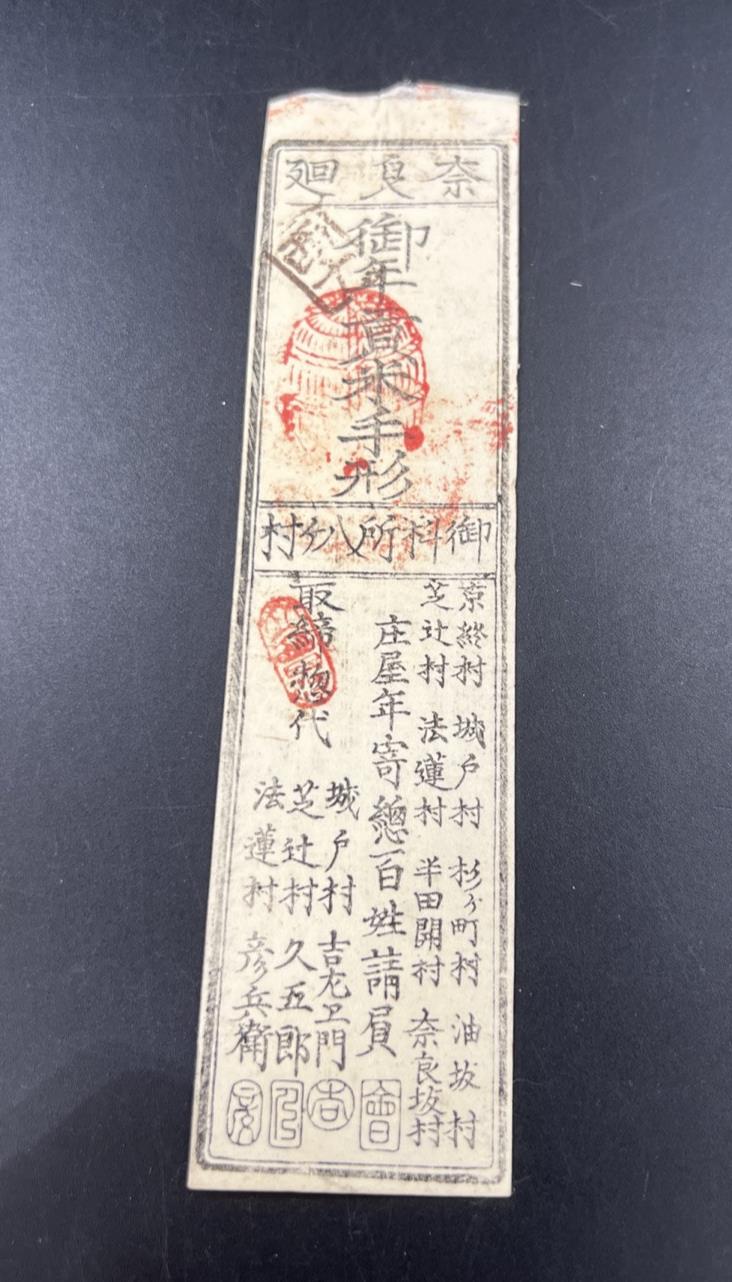 奈良廻
御年貢米手形
御料所八ケ村
京終村 城戸村 杉ケ町村 油坂村
芝辻村 法蓮村 半田開村 奈良坂村
庄屋年寄總百姓請負
會
取締惣代
城戸村 吉左エ門
吉
芝辻村 久五郎
法蓮村 彦兵衛
彦